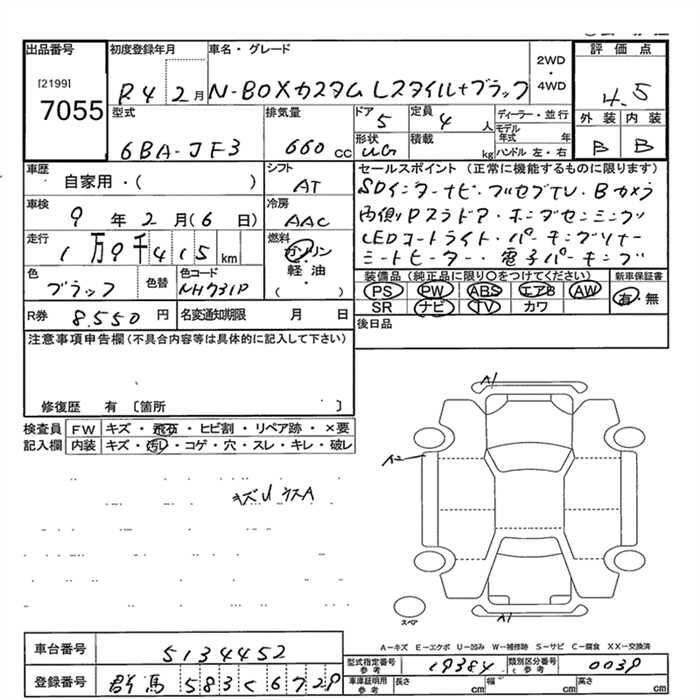 出品番号
[2199]
7055
初度登録年月
R4 2月
車名・グレード
N-BOXカスタム Lスタイル+ブラック
2WD
・
4WD
評価点
4.5
外装 内装
B B
型式
6BA-JF3
排気量
660 cc
ドア
5
定員
4 人
形状
UG
積載
kg
ディーラー・並行
モデル年式 年
ハンドル 左・右
車歴
自家用・( )
シフト
AT
車検
9 年 2 月(6 日)
冷房
AAC
走行
1万9千415 km
燃料
ガソリン
・
軽油
・
( )
色
ブラック
色替
色コード
NH731P
R券 8,550 円
名変通知期限 月 日
セールスポイント(正常に機能するものに限ります)
SDインターナビ・フルセグTV・Bカメラ
両側Pスラドア・ホンダセンシング
LEDコートライト・パーキングソナー
シートヒーター・電子パーキング
装備品(純正品に限り○をつけてください)
PS PW ABS エアB AW
SR ナビ TV カワ
新車保証書
有・無
後日品
注意事項申告欄(不具合内容等は具体的に記入して下さい)
修復歴 有 〔箇所 〕
検査員
記入欄
FW キズ・飛石・ヒビ割・リペア跡・×要
内装 キズ・汚れ・コゲ・穴・スレ・キレ・破レ
キズU ウスA
A1
A2
A1
スペア
A−キズ E−エクボ U−凹み W−補修跡 S−サビ C−腐食 XX−交換済
車台番号 5134452
登録番号 群馬 583 く 6729
型式指定番号
参考
19384
類別区分番号
参考
0039
車庫証明用
参考
長さ cm 幅 cm 高さ cm